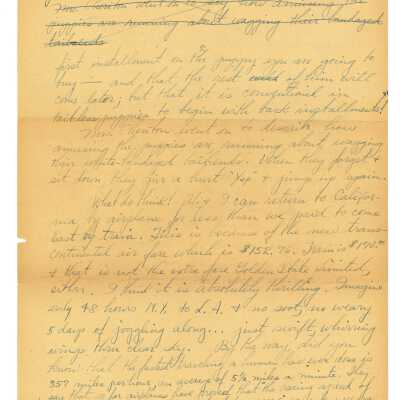 Mrs. Newton went on to say how amusing the
puppies are running about wagging their bandaged
tailends
first installment on the puppy you are going to
buy — and, that, the rest of him will
come later; but that it is conventional in
tailless puppies to begin with back installments!
Mrs. Newton went on to describe how
amusing the puppies are running about wagging
their white-bandaged tailends. When they forget &
sit down, they give a hurt "Yip" & jump up again.
What do think! & I can return to Califor-
nia by airplane for less than we paid to come
East by train. This is because of the new trans-
continental air fare which is $152.76. Train is
& that is not the extra fare Golden State Limited,
either. I think it is absolutely thrilling. Imagine
only 48 hours N.Y. to L.A. & no soot, no weary
5 days of joggling along... just swift, whirring
wings thru clear sky. By the way, did you
know that the fastest traveling a human has ever done is
357 miles per hour, an average of 5 9/10 miles a minute. They
say that